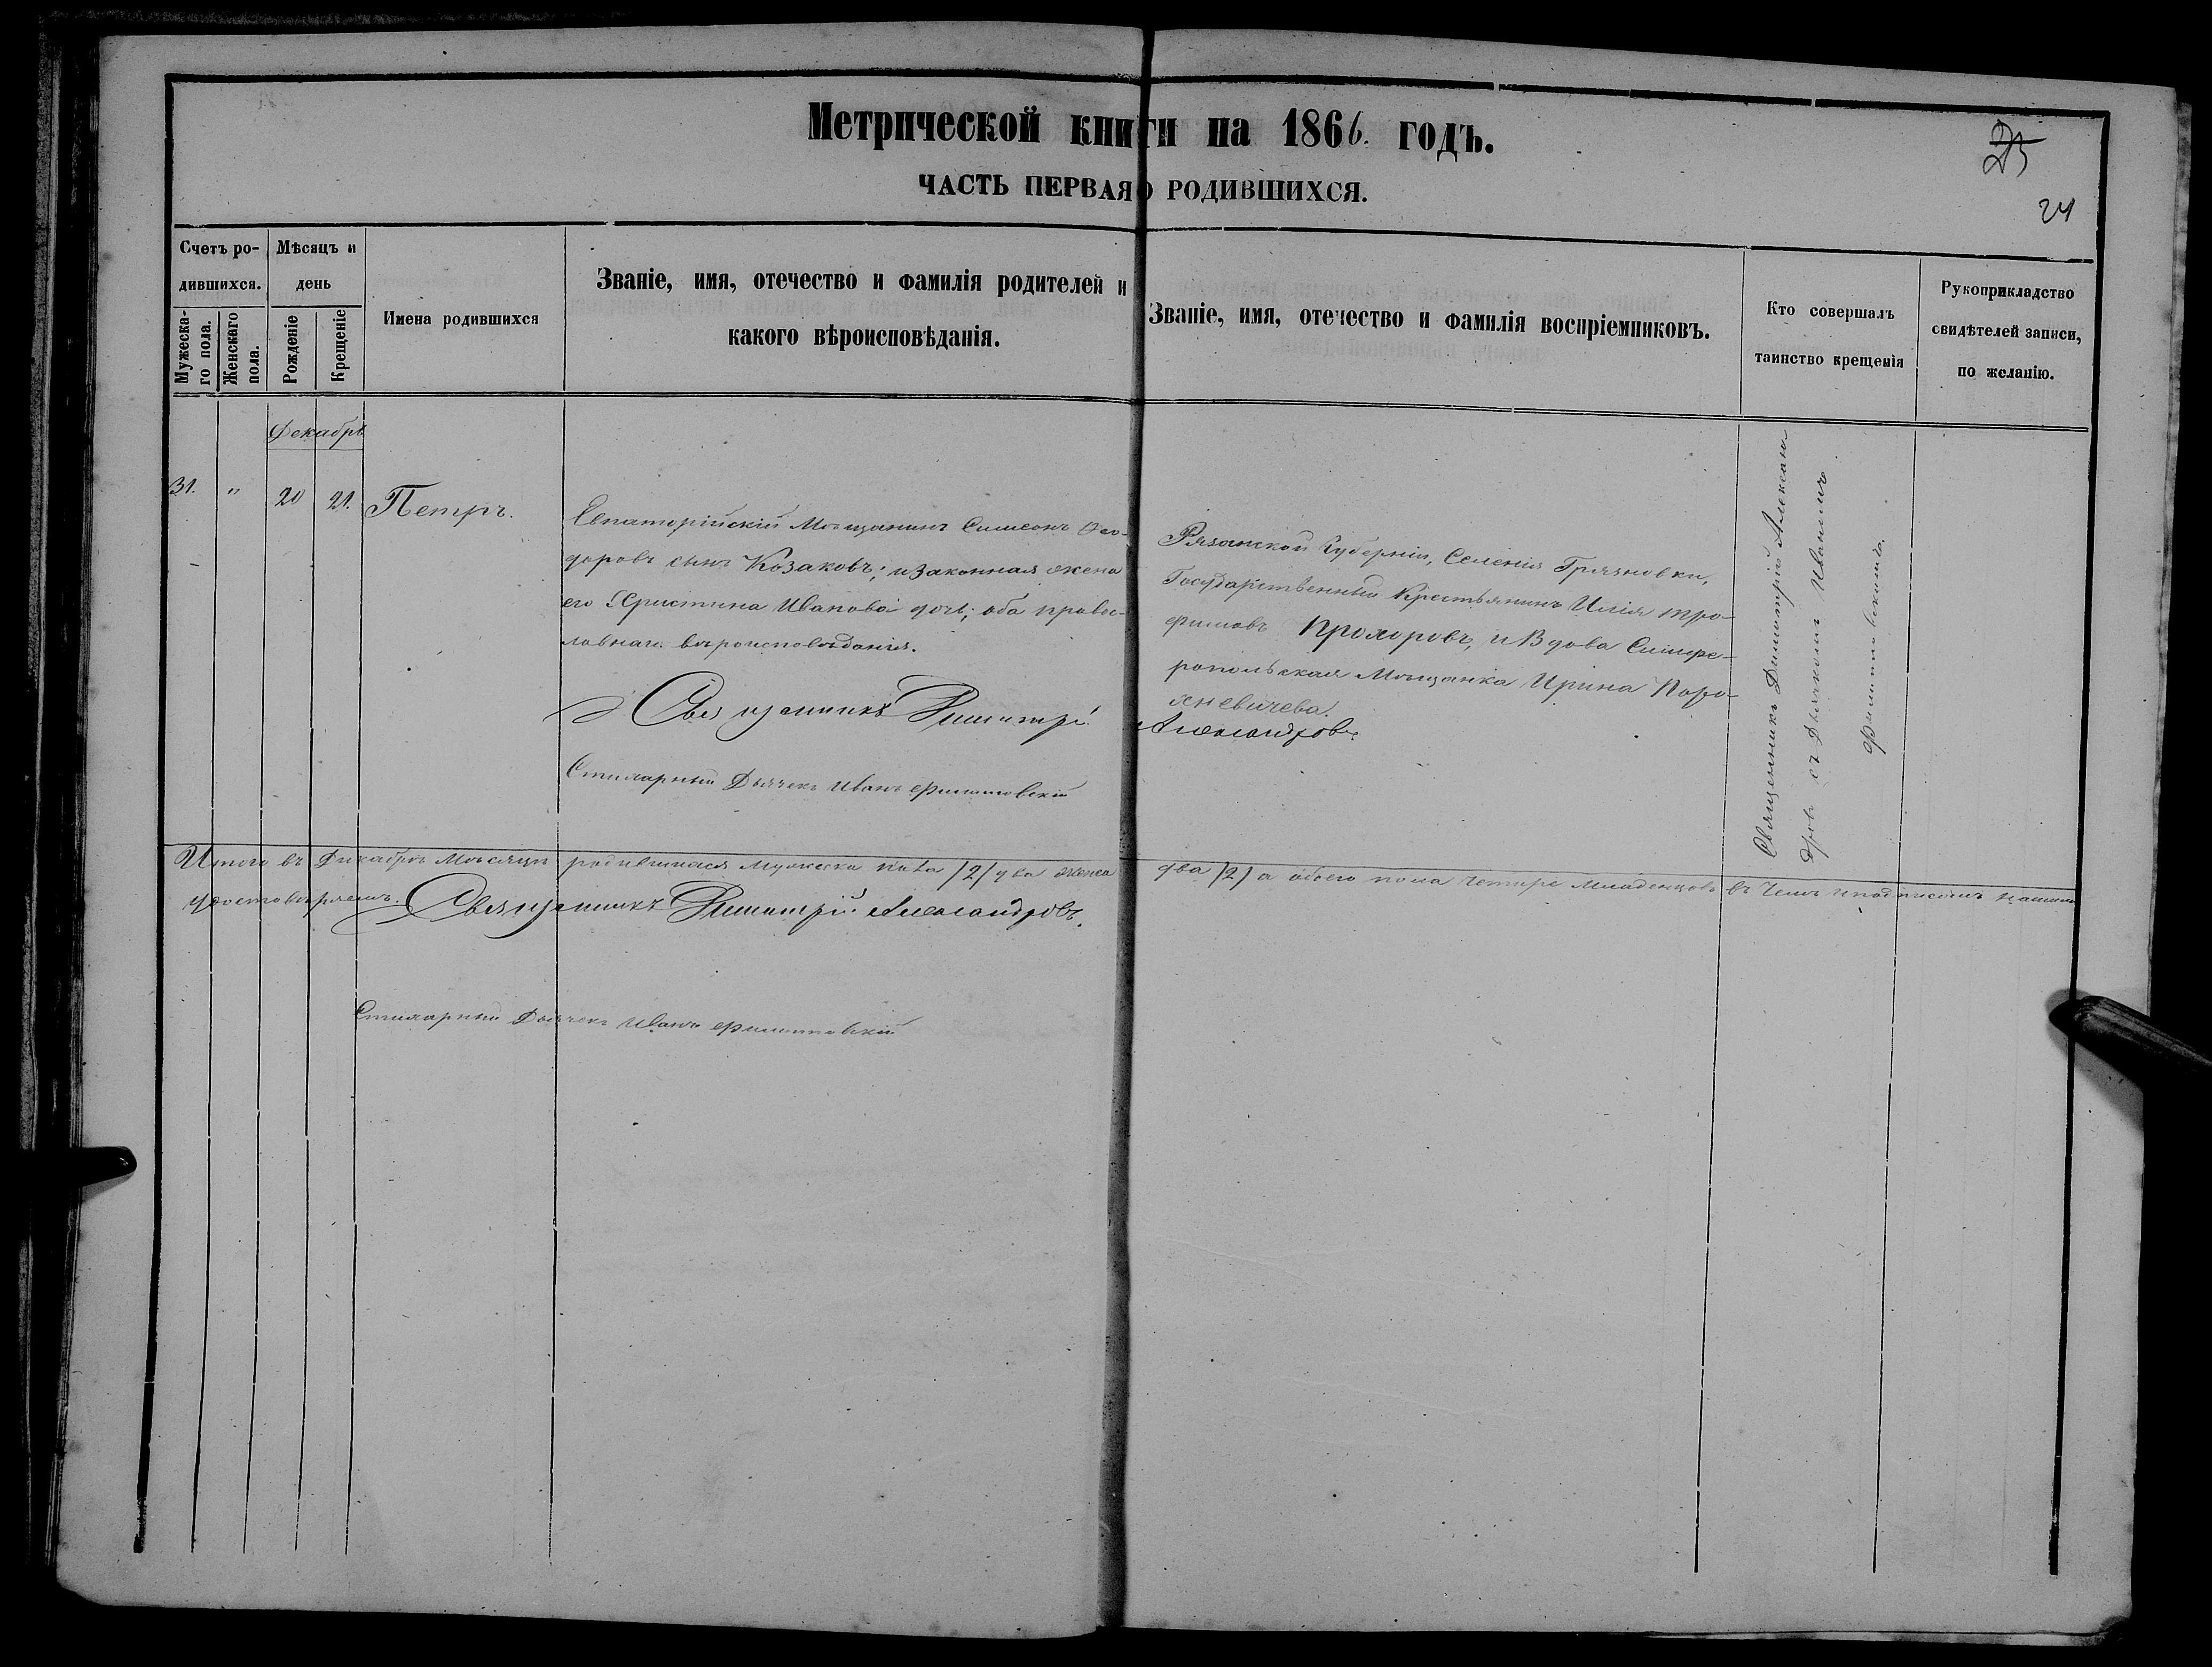 Метрической книги на 1866. годъ.
25
ЧАСТЬ ПЕРВАЯ О РОДИВШИХСЯ.
24
Счетъ ро-
дившихся.
Мужеска-
го пола.
Женскаго
пола.
Мѣсяцъ и
день
Рожденіе
Крещеніе
Имена родившихся
Званіе, имя, отечество и фамилія родителей и
какого вѣроисповѣданія.
Званіе, имя, отечество и фамилія воспріемниковъ.
Кто совершалъ
таинство крещенія
Рукоприкладство
свидѣтелей записи,
по желанію.
Декабрь
31. " 20 21. Петръ.
Евпаторійскій Мѣщанинъ Симеонъ Ѳео-
доровъ сынъ Козаковъ; и законная жена
его Христина Иванова дочь; оба правос-
лавнаго вѣроисповѣданія.
Рязанской Губерніи, Селенія Грязновки,
Государственный Крестьянинъ Илія Тро-
фимовъ Прохоровъ, и Вдова Симфе-
ропольская Мѣщанка Ирина
Священникъ Димитрій Алексан
дровъ съ Дьячкомъ Иваномъ
Филипповскимъ.
Священникъ Димитрій Александровъ
Стихарный Дьячекъ Иванъ Филипповскій
Итого въ Декабрѣ Мѣсяцѣ родившихся Мужеска пола /2/ два женска два /2/ а обоего пола четыре Младенцовъ въ чемъ и подписомъ нашим
удостовѣряемъ. Священникъ Димитрій Александровъ.
Стихарный Дьячекъ Иванъ Филипповскій